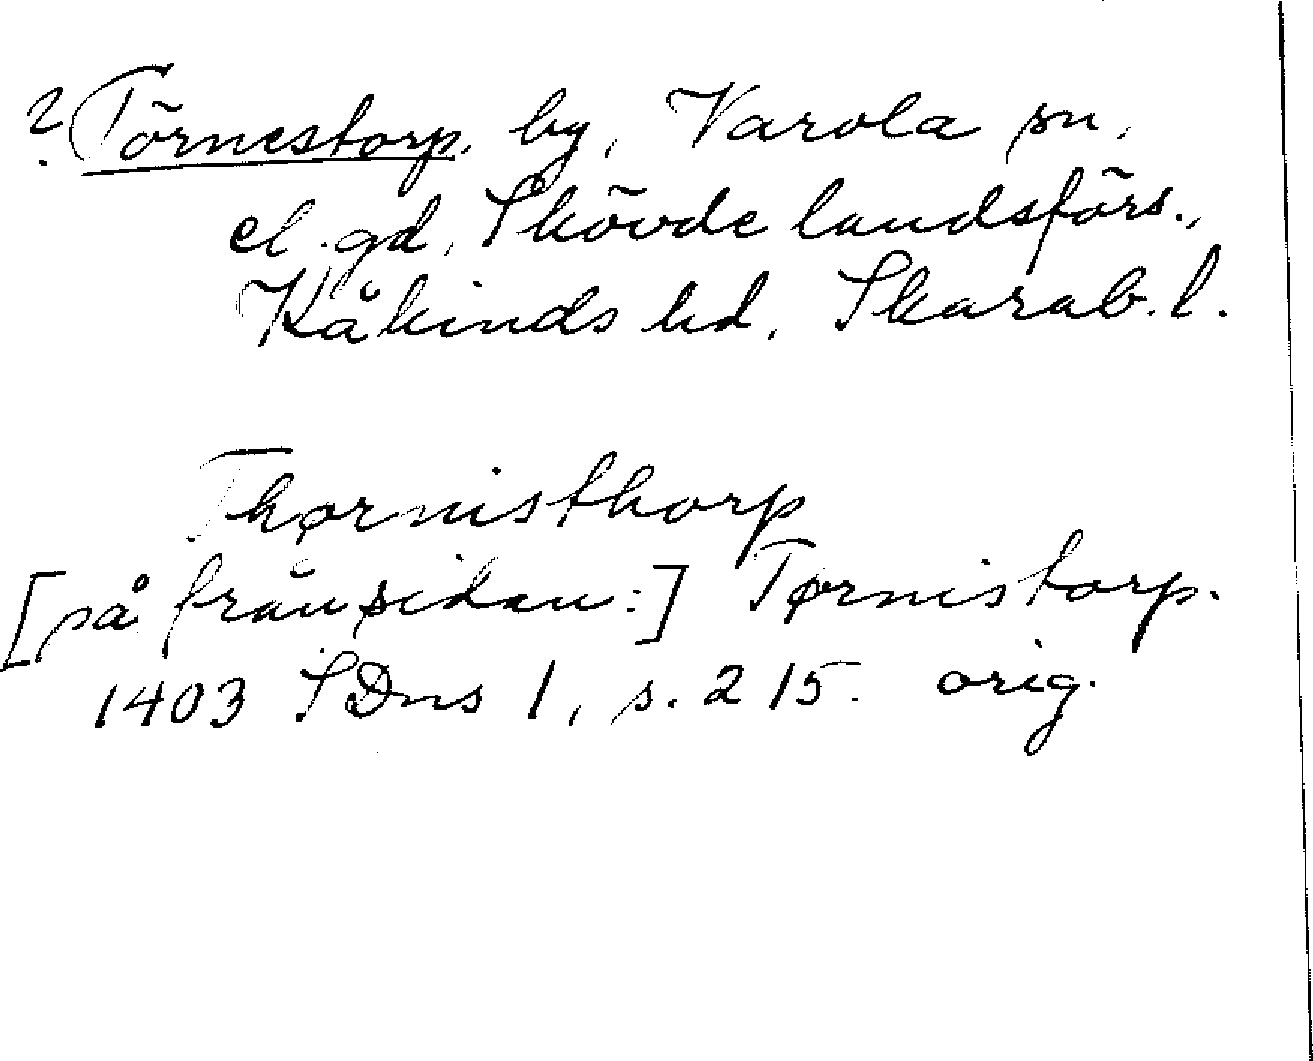 ? Törnestorp, by, Varola sn,
el. gd, Skövde landsförs.,
Kåkinds hd, Skarab. l.
Thørnisthorp
[på frånsidan:] Tørnistorp.
1403 SDns 1, s. 215. orig.